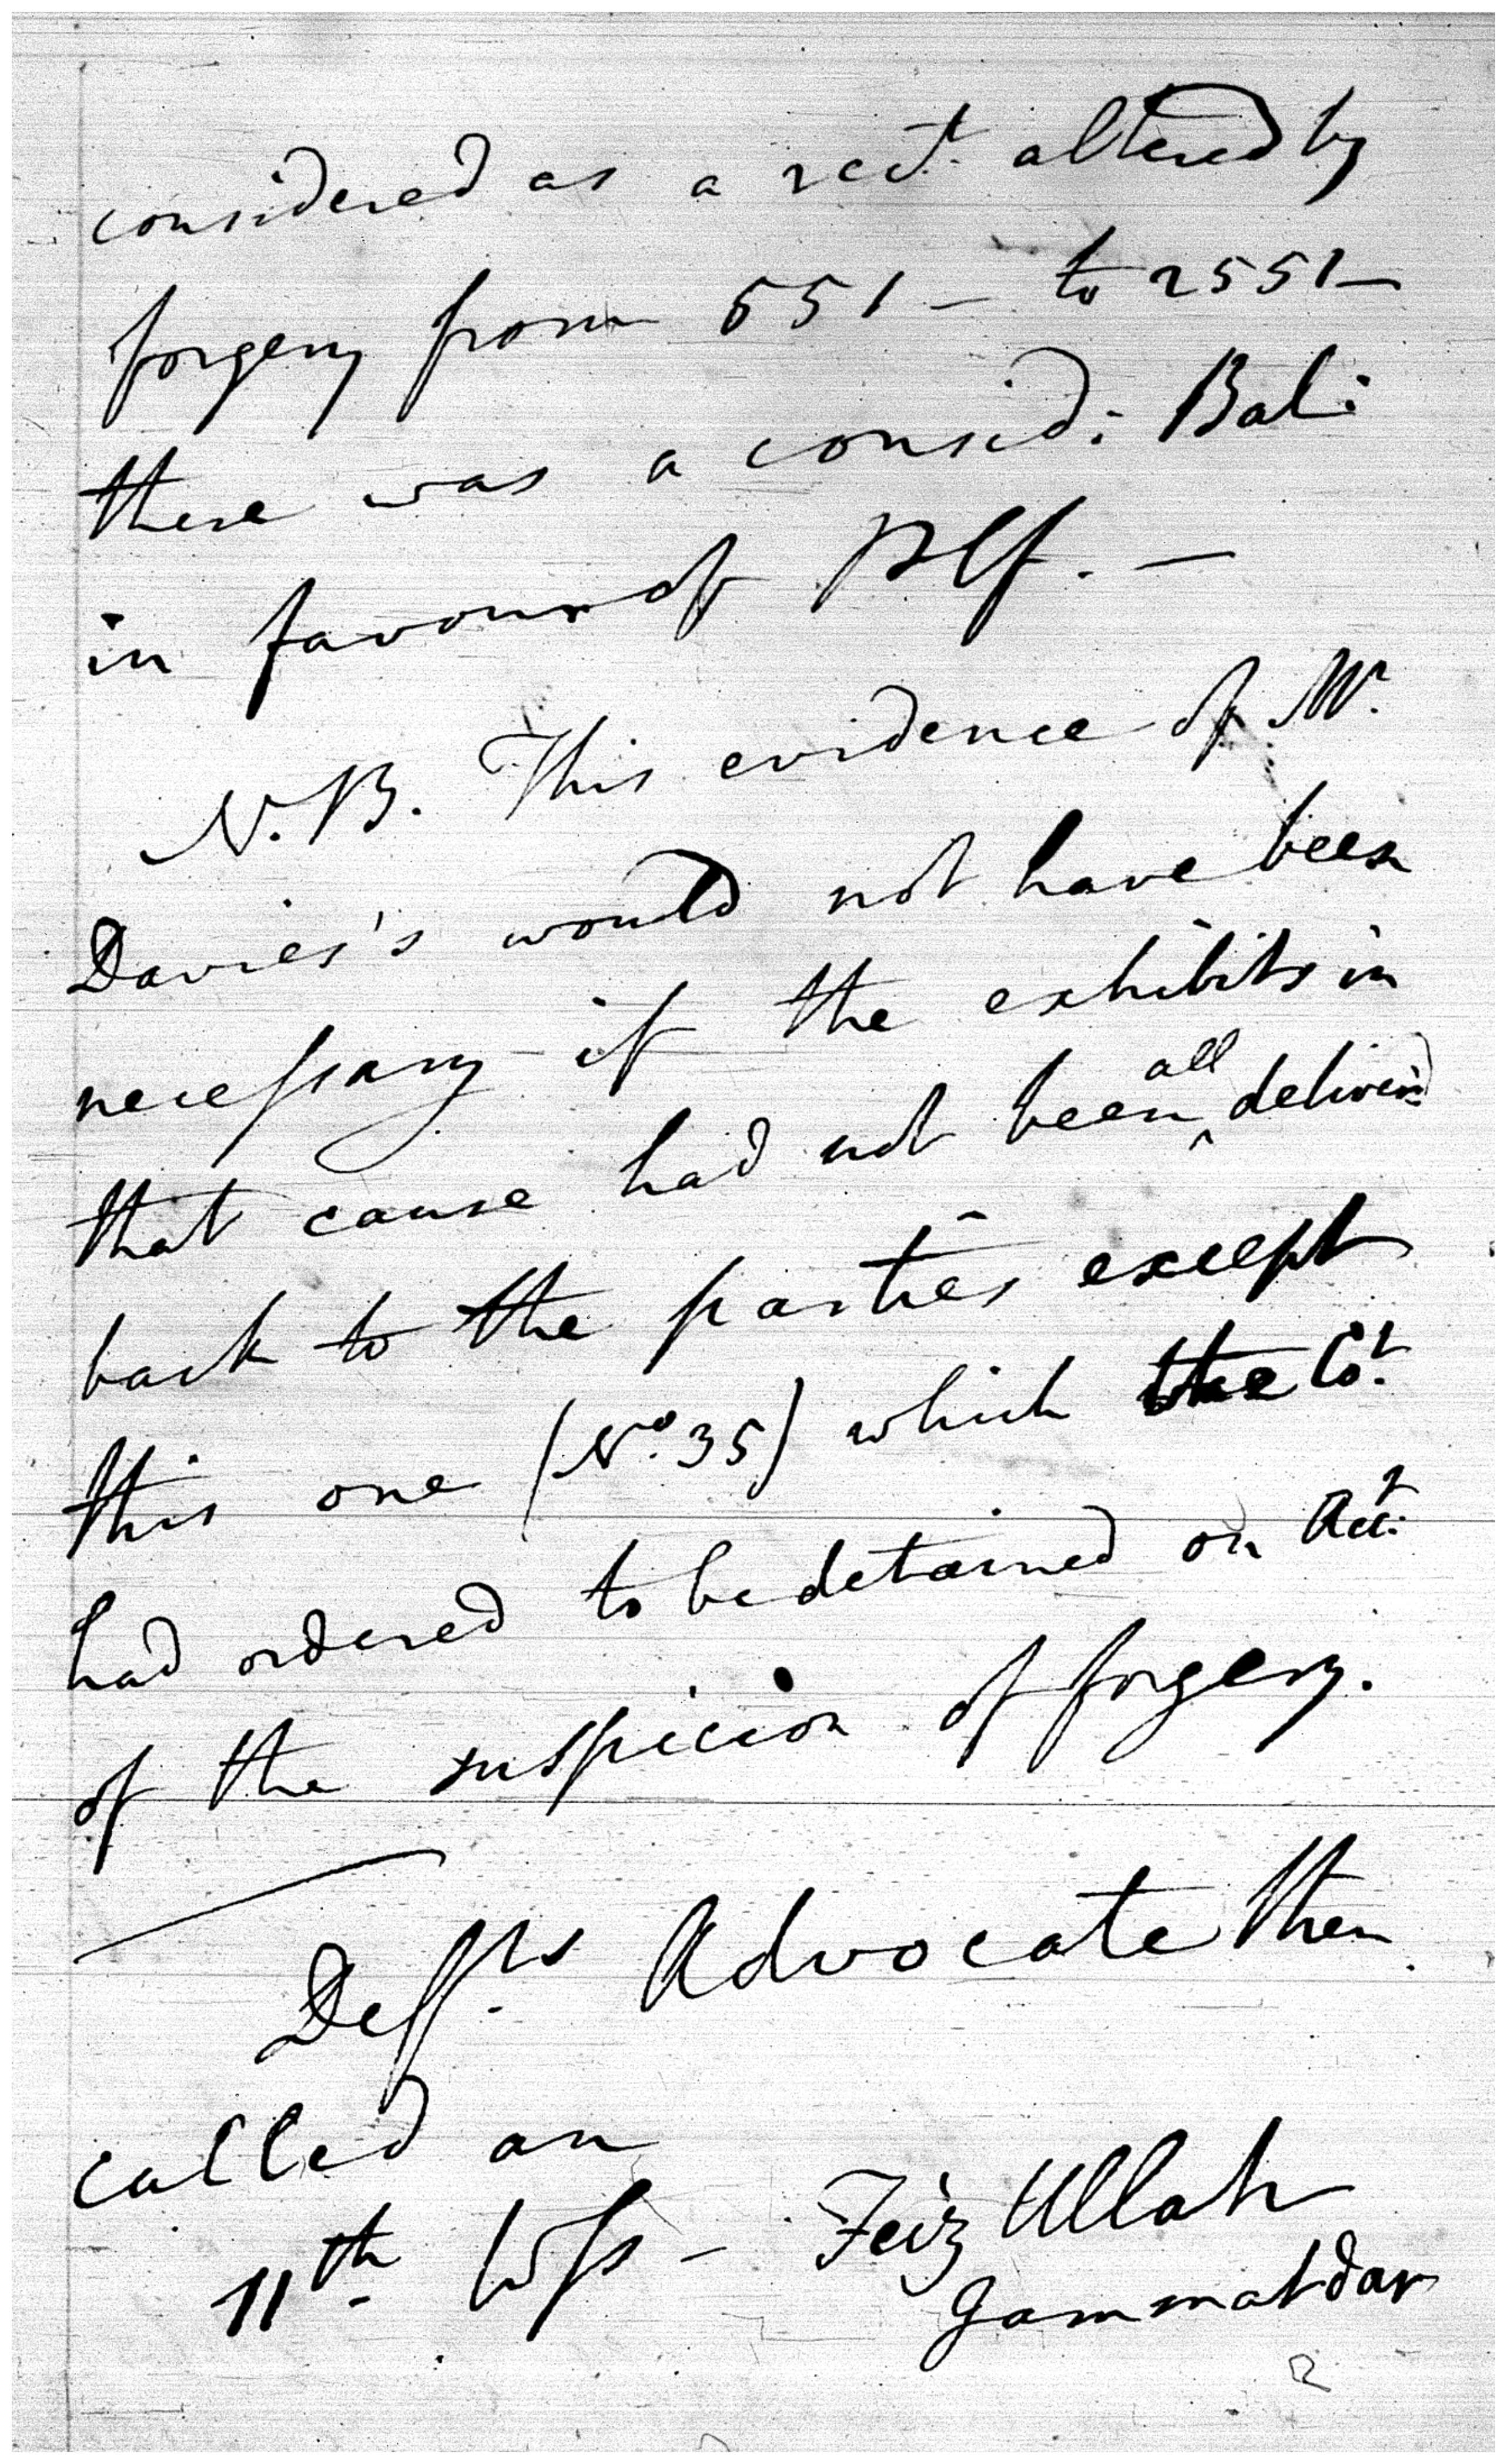 considered as a rect. altered by
forgery from 551 — to 2551 —
there was a consid: Bal:
in favour of Plf. —
N.B. This evidence of Mr.
Davies's would not have been
necessary if the exhibits in
that cause had not been all deliver'd
back to the parties except
this one (No. 35) which the Ct.
had ordered to be detained on Acct.
of the suspicion of forgery.
Defts. Advocate then
called an
11th Wss — Feiz Ullah
Jammatdar